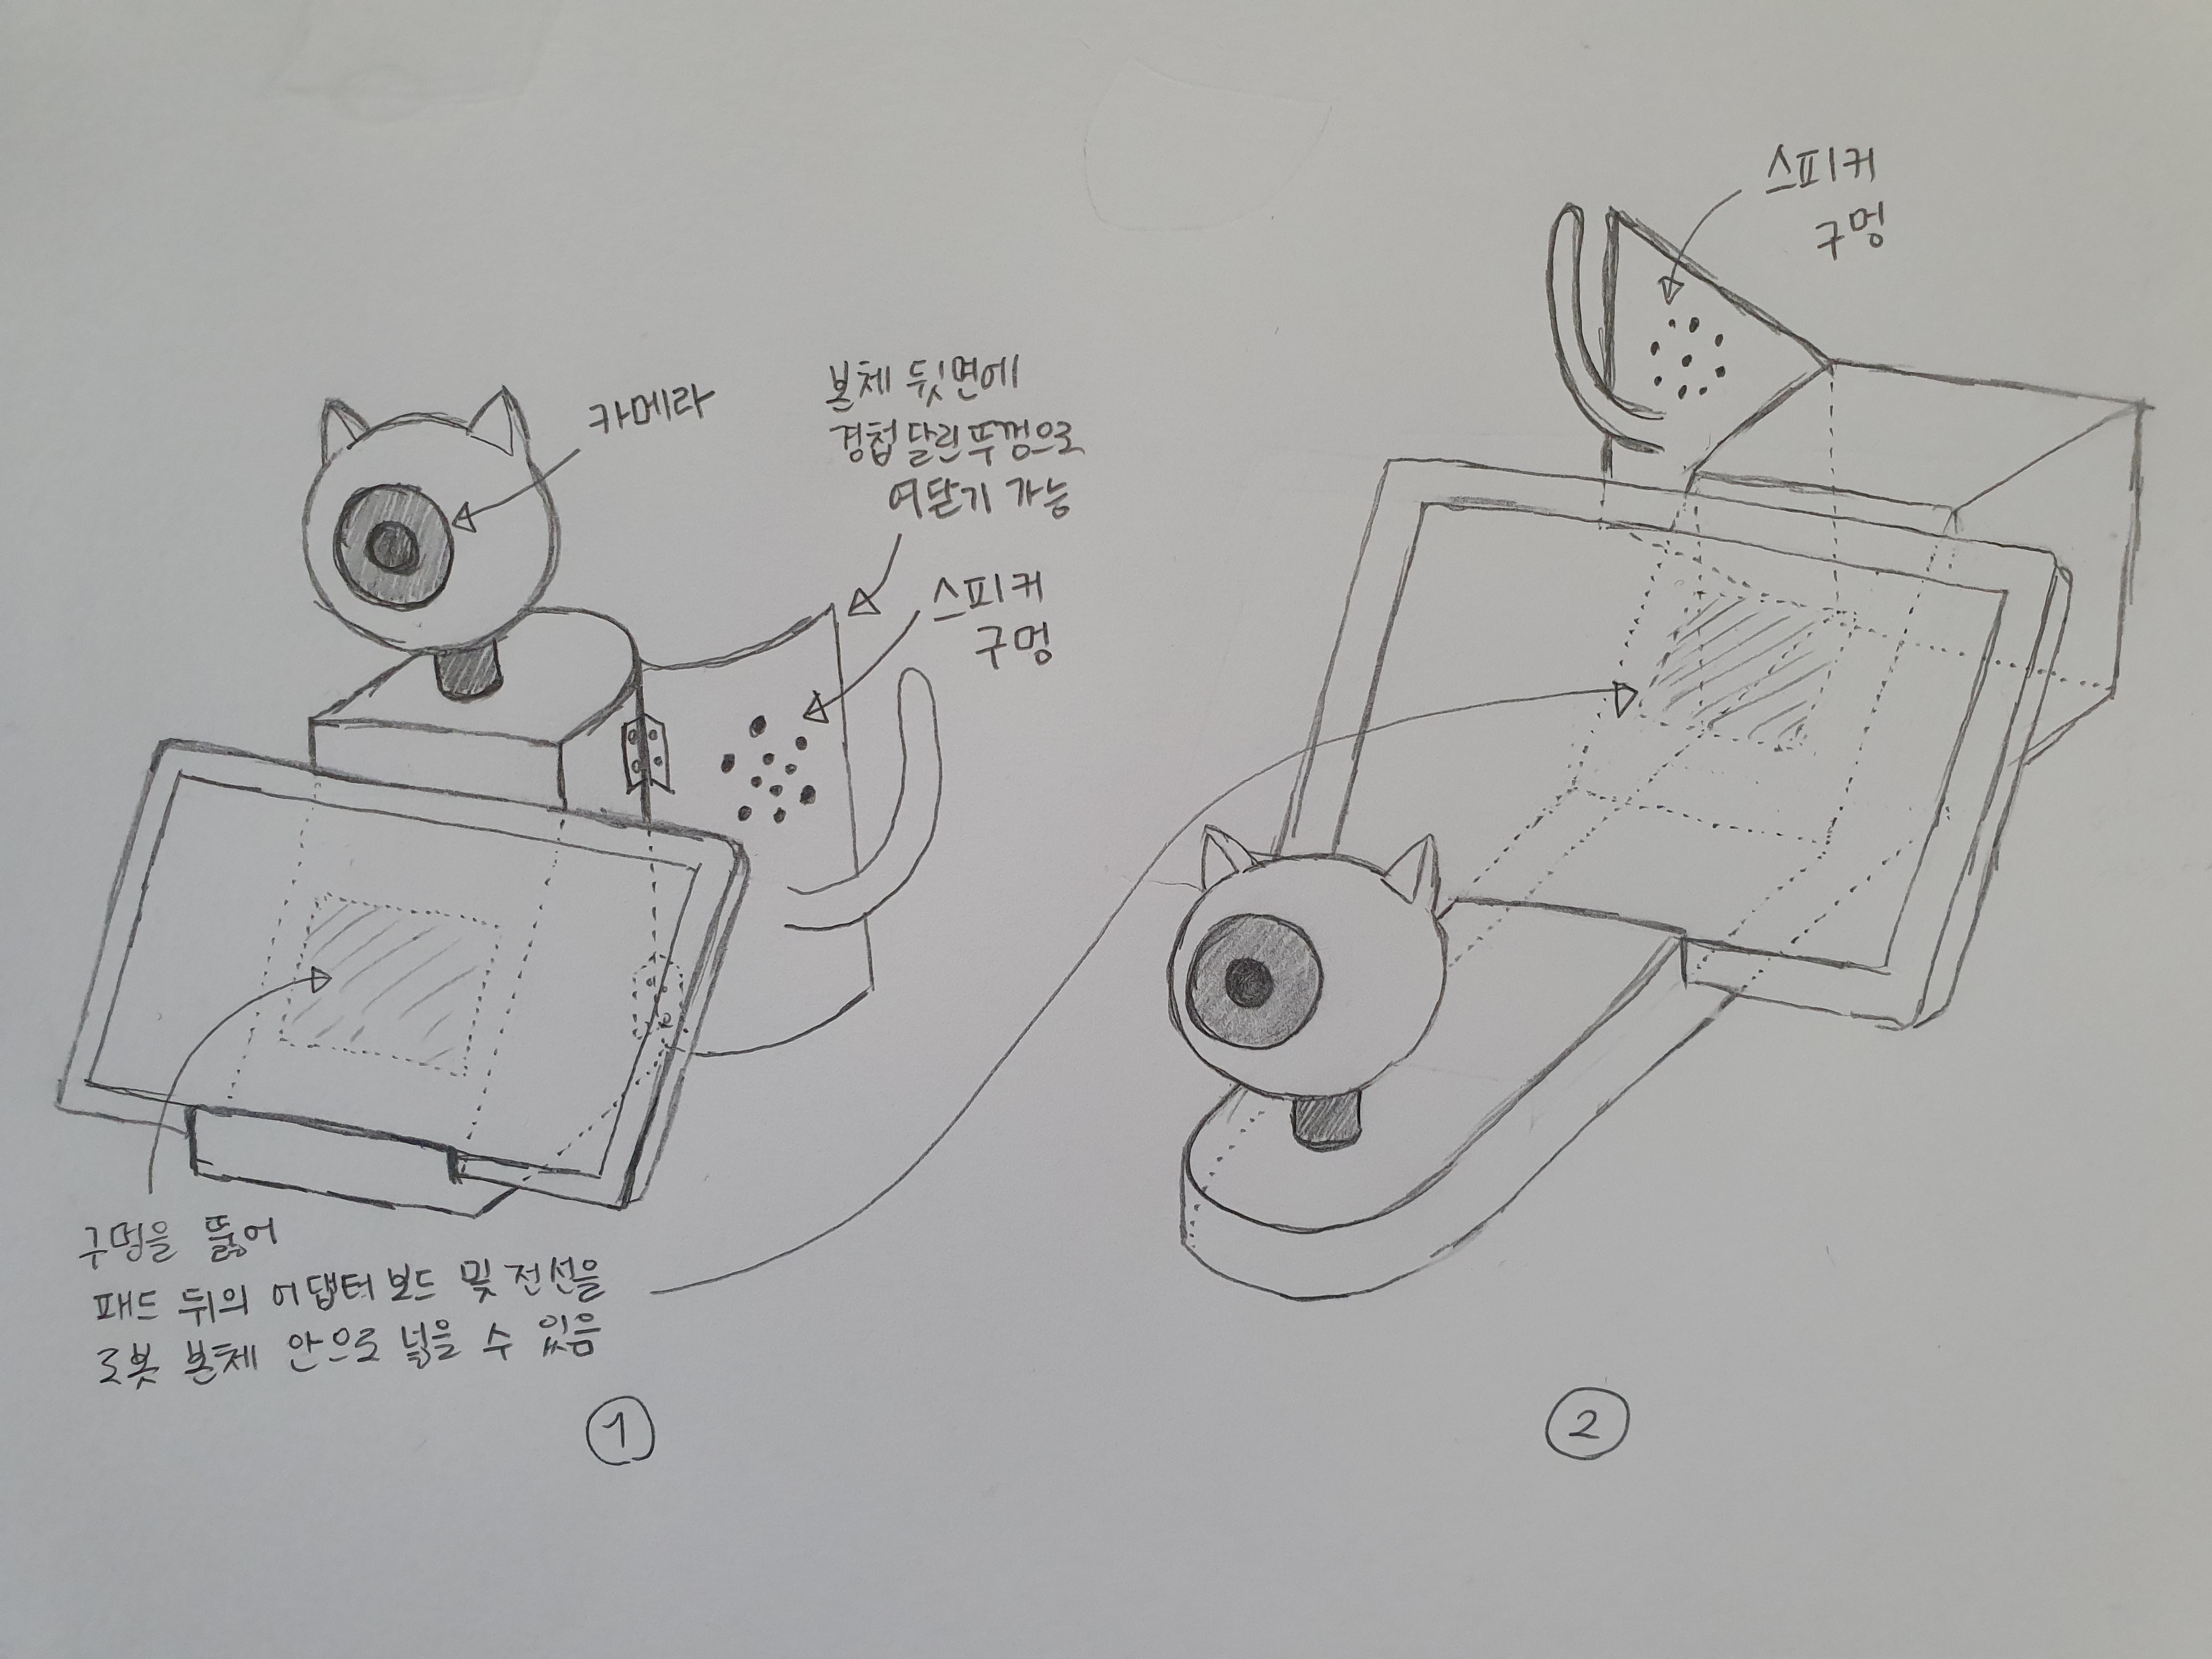 카메라
본체 뒷면에
경첩 달린 뚜껑으로
여닫기 가능
스피커
구멍
구멍을 뚫어
패드 뒤의 어댑터 보드 및 전선을
로봇 본체 안으로 넣을 수 있음
1
스피커
구멍
2